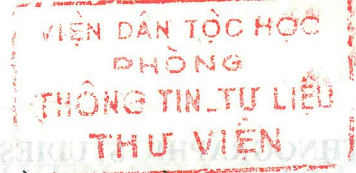 VIỆN DÂN TỘC HỌC
PHÒNG
THÔNG TIN_TƯ LIỆU
THƯ VIỆN